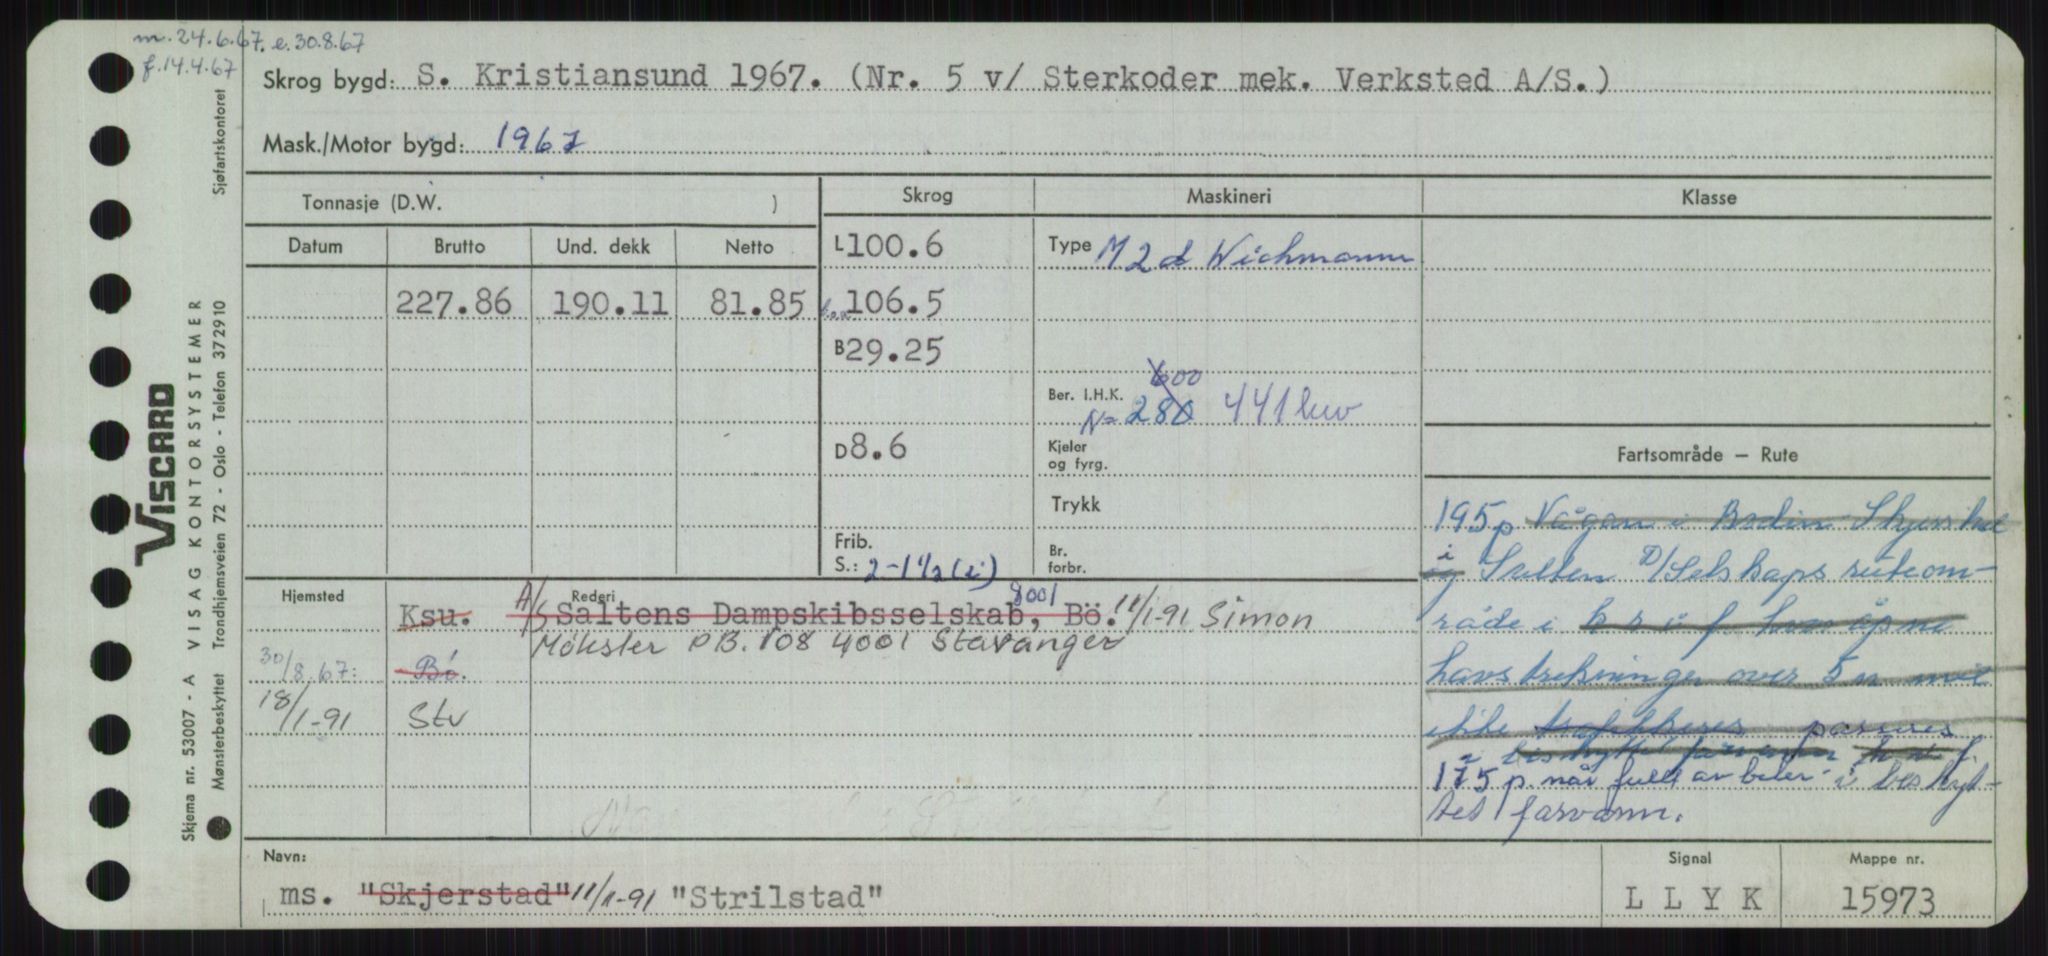 m. 24.6.67. e. 30.8.67
f. 14.4.67
Skrog bygd: S. Kristiansund 1967. (Nr. 5 v/ Sterkoder mek. Verksted A/S.)
Mask./Motor bygd: 1967
Tonnasje (D.W. )
Skrog
Maskineri
Klasse
Datum Brutto Und. dekk Netto
L 100.6
Type M 2 d Wichmann
227.86 190.11 81.85
106.5
B 29.25
600
Ber. I.H.K.
N= 280 441 kw
D 8.6
Kjeler
og fyrg.
Trykk
Frib.
S.: 2-1 1/2 (i)
Br.
forbr.
Fartsområde — Rute
195 p Vågan i Bodin Skjerstad
i
og Salten D/Selskaps ruteom-
råde i h s i f hvor åpne
havstrekninger over 5 n mil
ikke trafikkeres passeres
i beskyttet farvann
175 p. når full av biler i beskyt-
tet farvann.
Hjemsted
Rederi
Ksu. A/S Saltens Dampskibsselskab, 8001 Bö. 11/1-91 Simon
Mökster PB. 108 4001 Stavanger
30/8.67: Bö.
18/1-91 Stv
Navn:
ms. "Skjerstad" 11/1-91 "Strilstad"
Signal
L L Y K
Mappe nr.
15973
Sjøfartskontoret
VISCARD
VISAG KONTORSYSTEMER
Trondhjemsveien 72 - Oslo - Telefon 372910
Skjema nr. 53007 - A
Mønsterbeskyttet